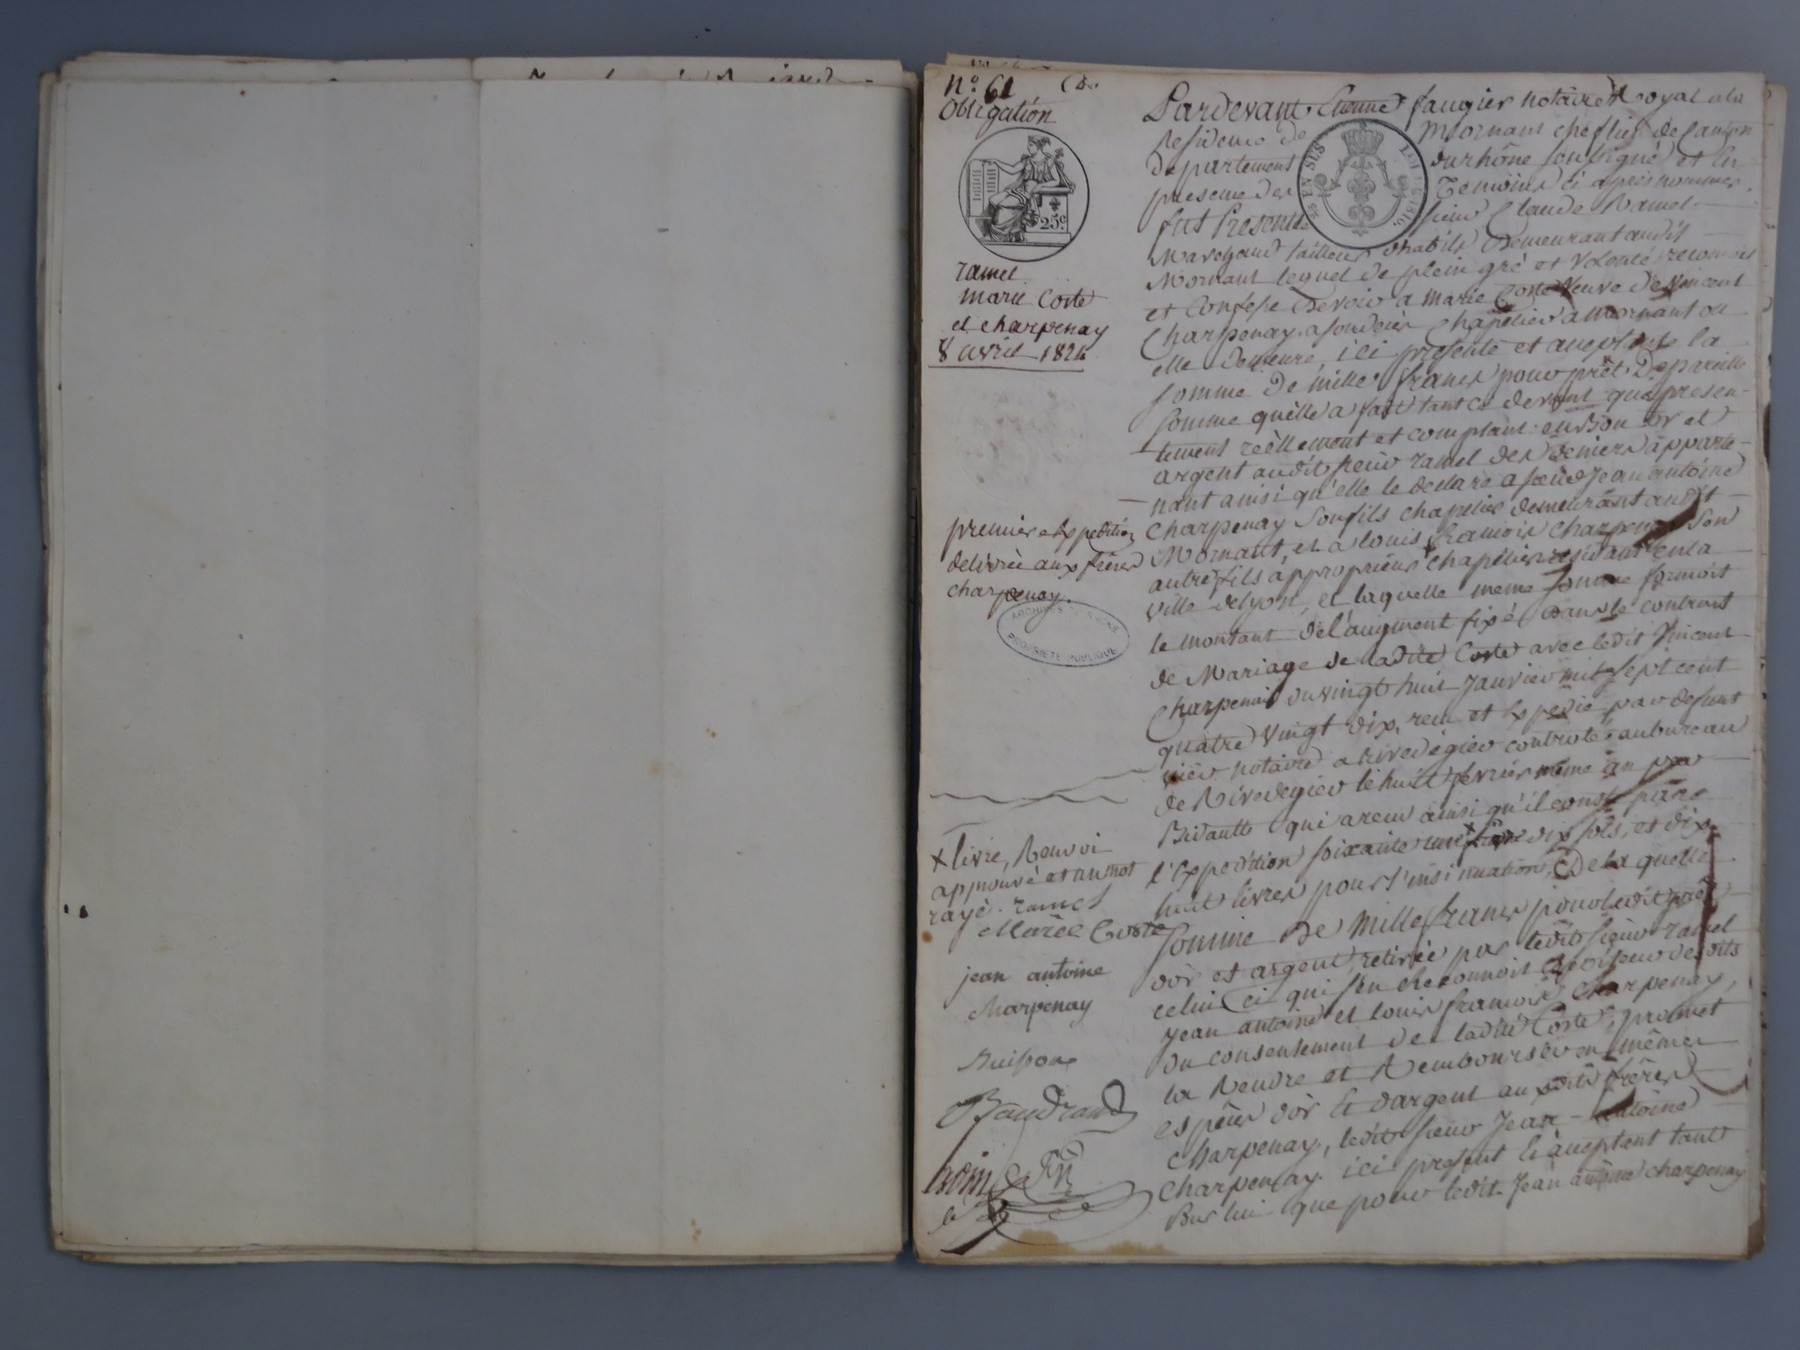 n.° 61
Obligation
25c
ramel
marie Coste
et charpenay
8 avril 1824
premiere Expedition
delivrée aux frères
charpenay.
ARCHIVES DU RHONE
PROPRIETE PUBLIQUE
x livre, Renvoi
approuvé et un mot
rayé. ramel
Mariee Coste
jean antoine
charpenay
Buisson
Baudrand
Pardevant Etienne faugier notaire Royal ala
Residence de Mornant cheflieu de Canton
Departement du rhône soussigné et En
presence des Temoins ci après nommés.
fut Present sieur Claude Ramel
Marchand tailleur d'habits Demeurant audit
Mornant lequel de plein gré et volonté reconnois
et Confesse Devoir a marie Coste Veuve de Vincent
Charpenay, chapelier a Mornant ou
elle Demeure, ici presente et aceptante la
somme de mille francs pour prêt De pareille
somme quelle a fait tant ce devant que presen-
tement reèllement et comptant en or et
argent audit sieur ramel des deniers apparte-
nant ainsi qu'elle le declare a sieur Jean antoine
Charpenay Son fils chapelier demeurant audit
Mornant, et a louis francois charpenay son
autre fils approprieur chapelier residant en la
ville de lyon, et laquelle meme Somme formoit
le montant de l'augment fixé dans le contrat
de Mariage de ladite Coste avec ledit Vincent
Charpenay du vingt huit Janvier mil sept cent
quatre vingt dix, recu et Expedié par defunt
notaire a rivedegier controlé au bureau
de Rivedegier le huit fevrier même an par
qui a recu ainsi qu'il conste par
l'Expedition soixante une x dix sols, et dix
huit livres pour l'insinuation, De la quelle
Somme de Mille francs pour ledit prêt
dor et argent, retirée par ledit sieur ramel
celui ci qui s'en Reconnoit Debiteur desdits
Jean antoine et louis francois Charpenay,
du consentement de ladite Coste, promet
la Rendre et Rembourser en mêmes
espèces dor Et dargent auxdits frères
Charpenay, ledit sieur Jean - antoine
Charpenay ici present Et aceptant tant
Pour lui que pour ledit Jean antoine charpenay